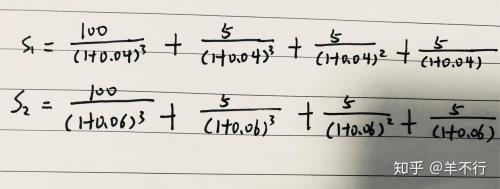 S₁ = 100/(1+0.04)³ + 5/(1+0.04)³ + 5/(1+0.04)² + 5/(1+0.04)
S₂ = 100/(1+0.06)³ + 5/(1+0.06)³ + 5/(1+0.06)² + 5/(1+0.06)
知乎 @羊不行